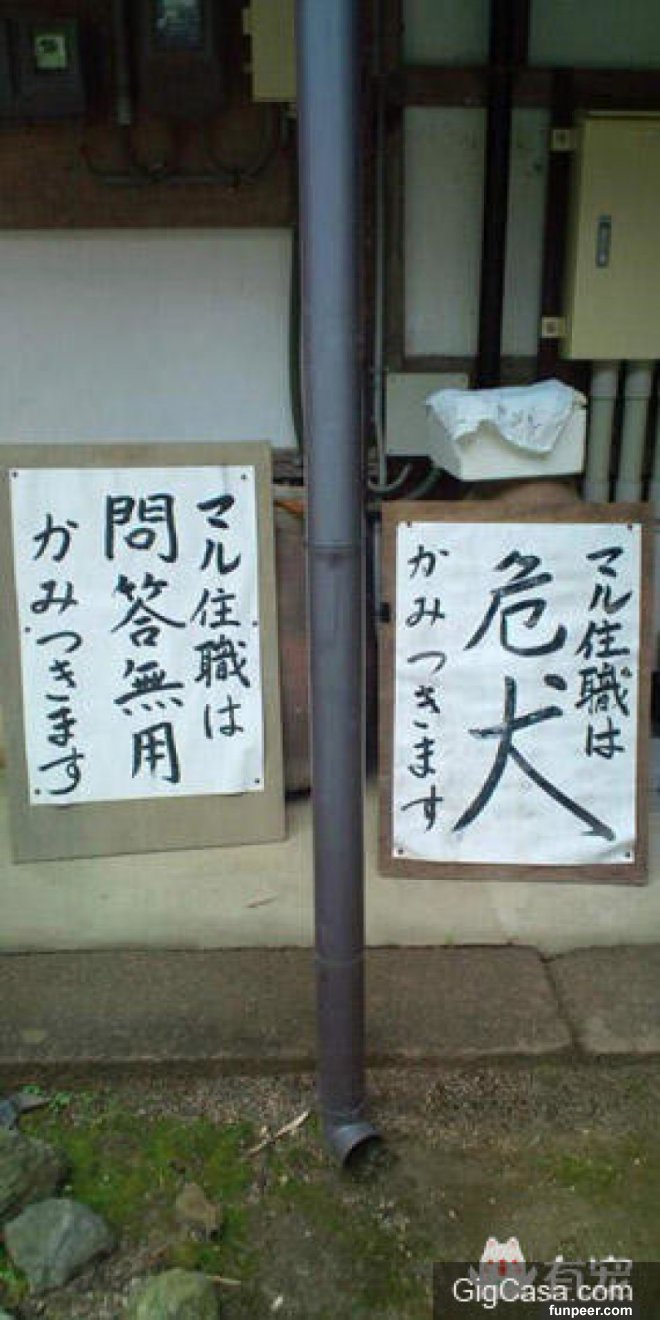 マル住職は
問答無用
かみつきます
マル住職は
危犬
かみつきます
有宠
GigCasa.com
funpeer.com